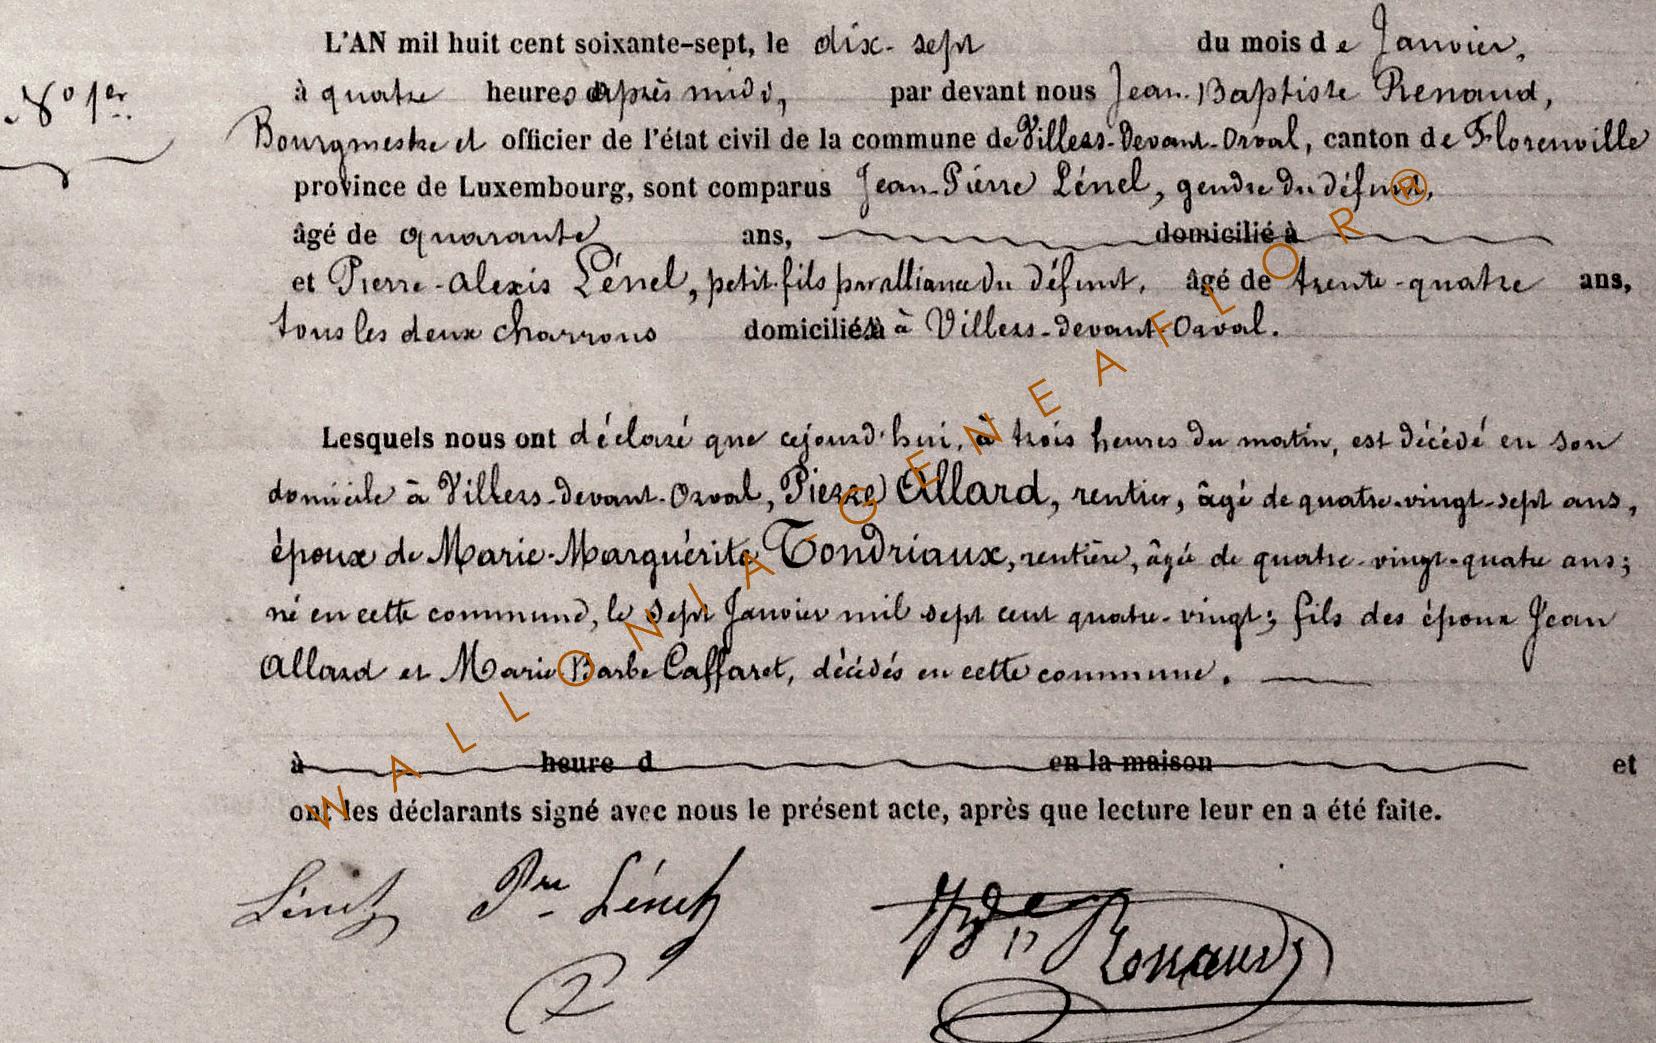 L'AN mil huit cent soixante-sept, le dix-sept du mois de Janvier,
N° 1er
à quatre heures après midi, par devant nous Jean-Baptiste Renaud,
Bourgmestre et officier de l'état civil de la commune de Villers-Devant-Orval, canton de Florenville
province de Luxembourg, sont comparus Jean-Pierre Lénel, gendre du défunt,
âgé de quarante ans, domicilié à
et Pierre-Alexis Lénel, petit-fils par alliance du défunt, âgé de trente-quatre ans,
tous les deux charrons domiciliés à Villers-devant-Orval.
Lesquels nous ont déclaré que cejourd'hui, à trois heures du matin, est décédé en son
domicile à Villers-devant-Orval, Pierre Allard, rentier, âgé de quatre-vingt-sept ans,
époux de Marie-Marguérite Tondriaux, rentière, âgé de quatre-vingt-quatre ans;
né en cette commune, le sept Janvier mil sept cent quatre-vingt; fils des époux Jean
Allard et Marie Barbe Caffaret, décédés en cette commune.
à heure d en la maison et
ont les déclarants signé avec nous le présent acte, après que lecture leur en a été faite.
Renaud
WALLONIA - GENEAFLOR ®